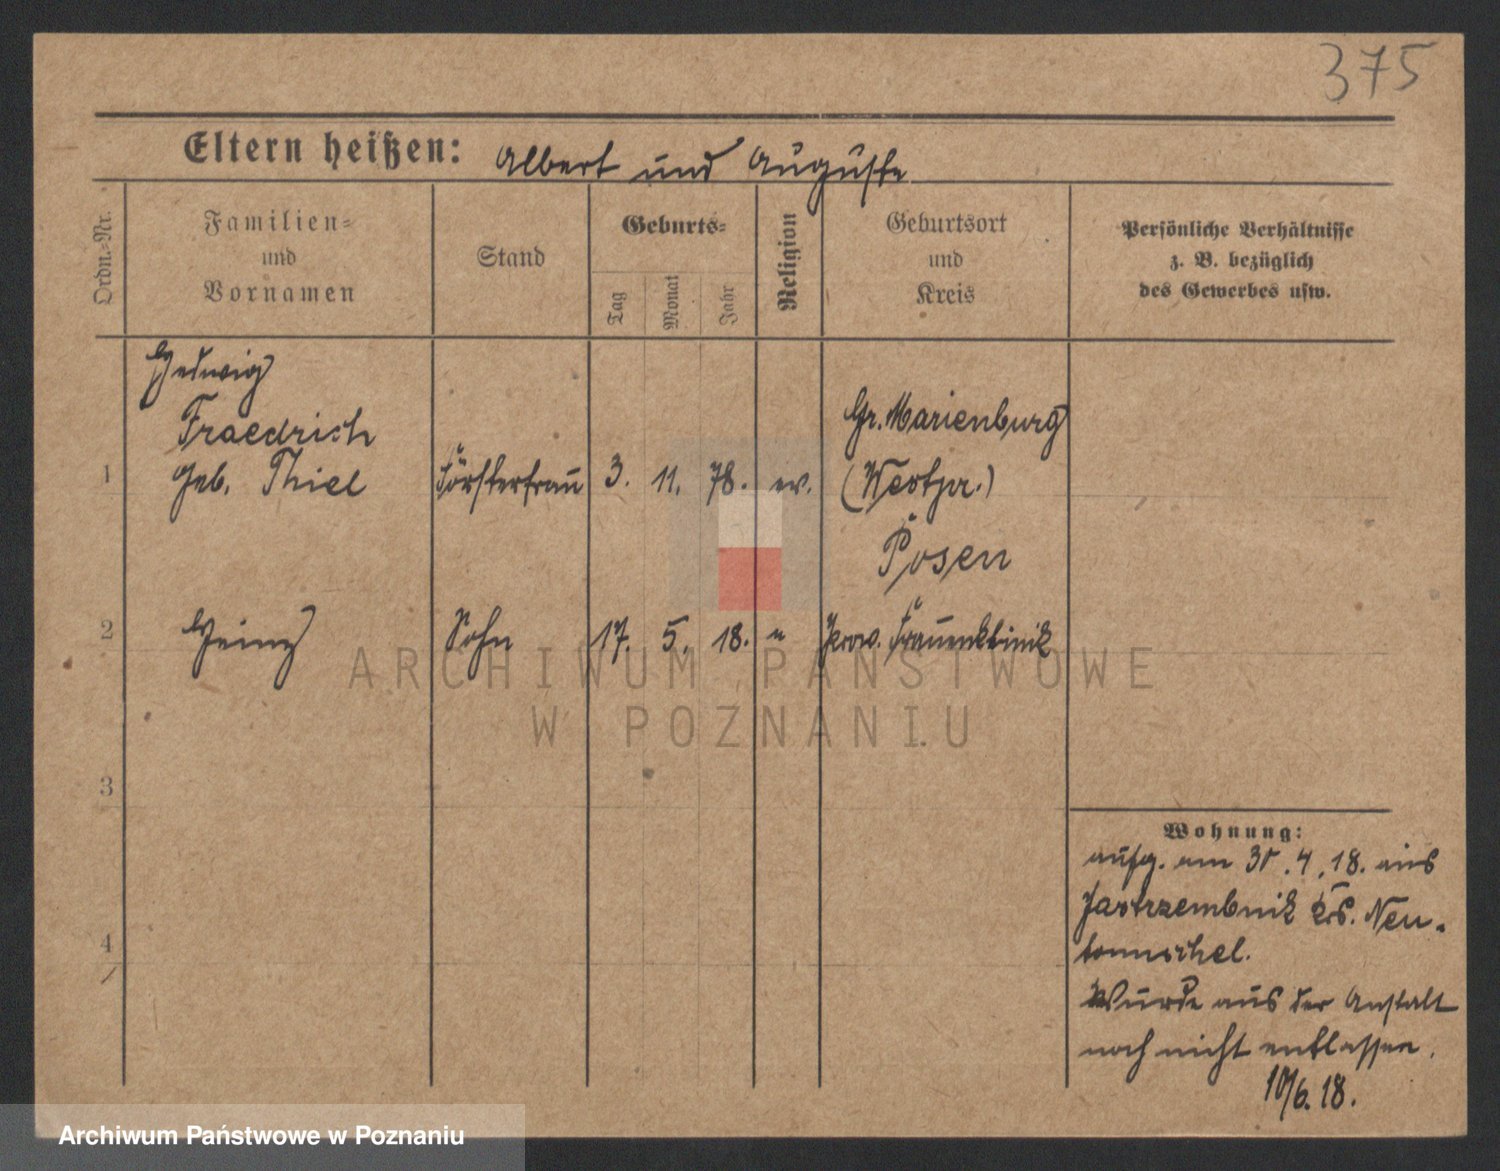 375
Eltern heißen: Albert und Auguste
Ordn.-Nr.
Familien-
und
Vornamen
Stand
Geburts-
Tag
Monat
Jahr
Religion
Geburtsort
und
Kreis
Persönliche Verhältnisse
z. B. bezüglich
des Gewerbes usw.
Hedwig
Fraedrich
1 geb. Thiel Försterfrau 3. 11. 78. ev.
Gr. Marienburg
(Westpr.)
Posen
2 Heinz Sohn 17. 5. 18. " Prov. Frauenklinik
3
4
Wohnung:
aufg. am 30.4.18. aus
Jastrzembnik Krs. Neu-
tomischel.
Wurde aus der Anstalt
noch nicht entlassen.
10/6.18.
ARCHIWUM PAŃSTWOWE
W POZNANIU
Archiwum Państwowe w Poznaniu